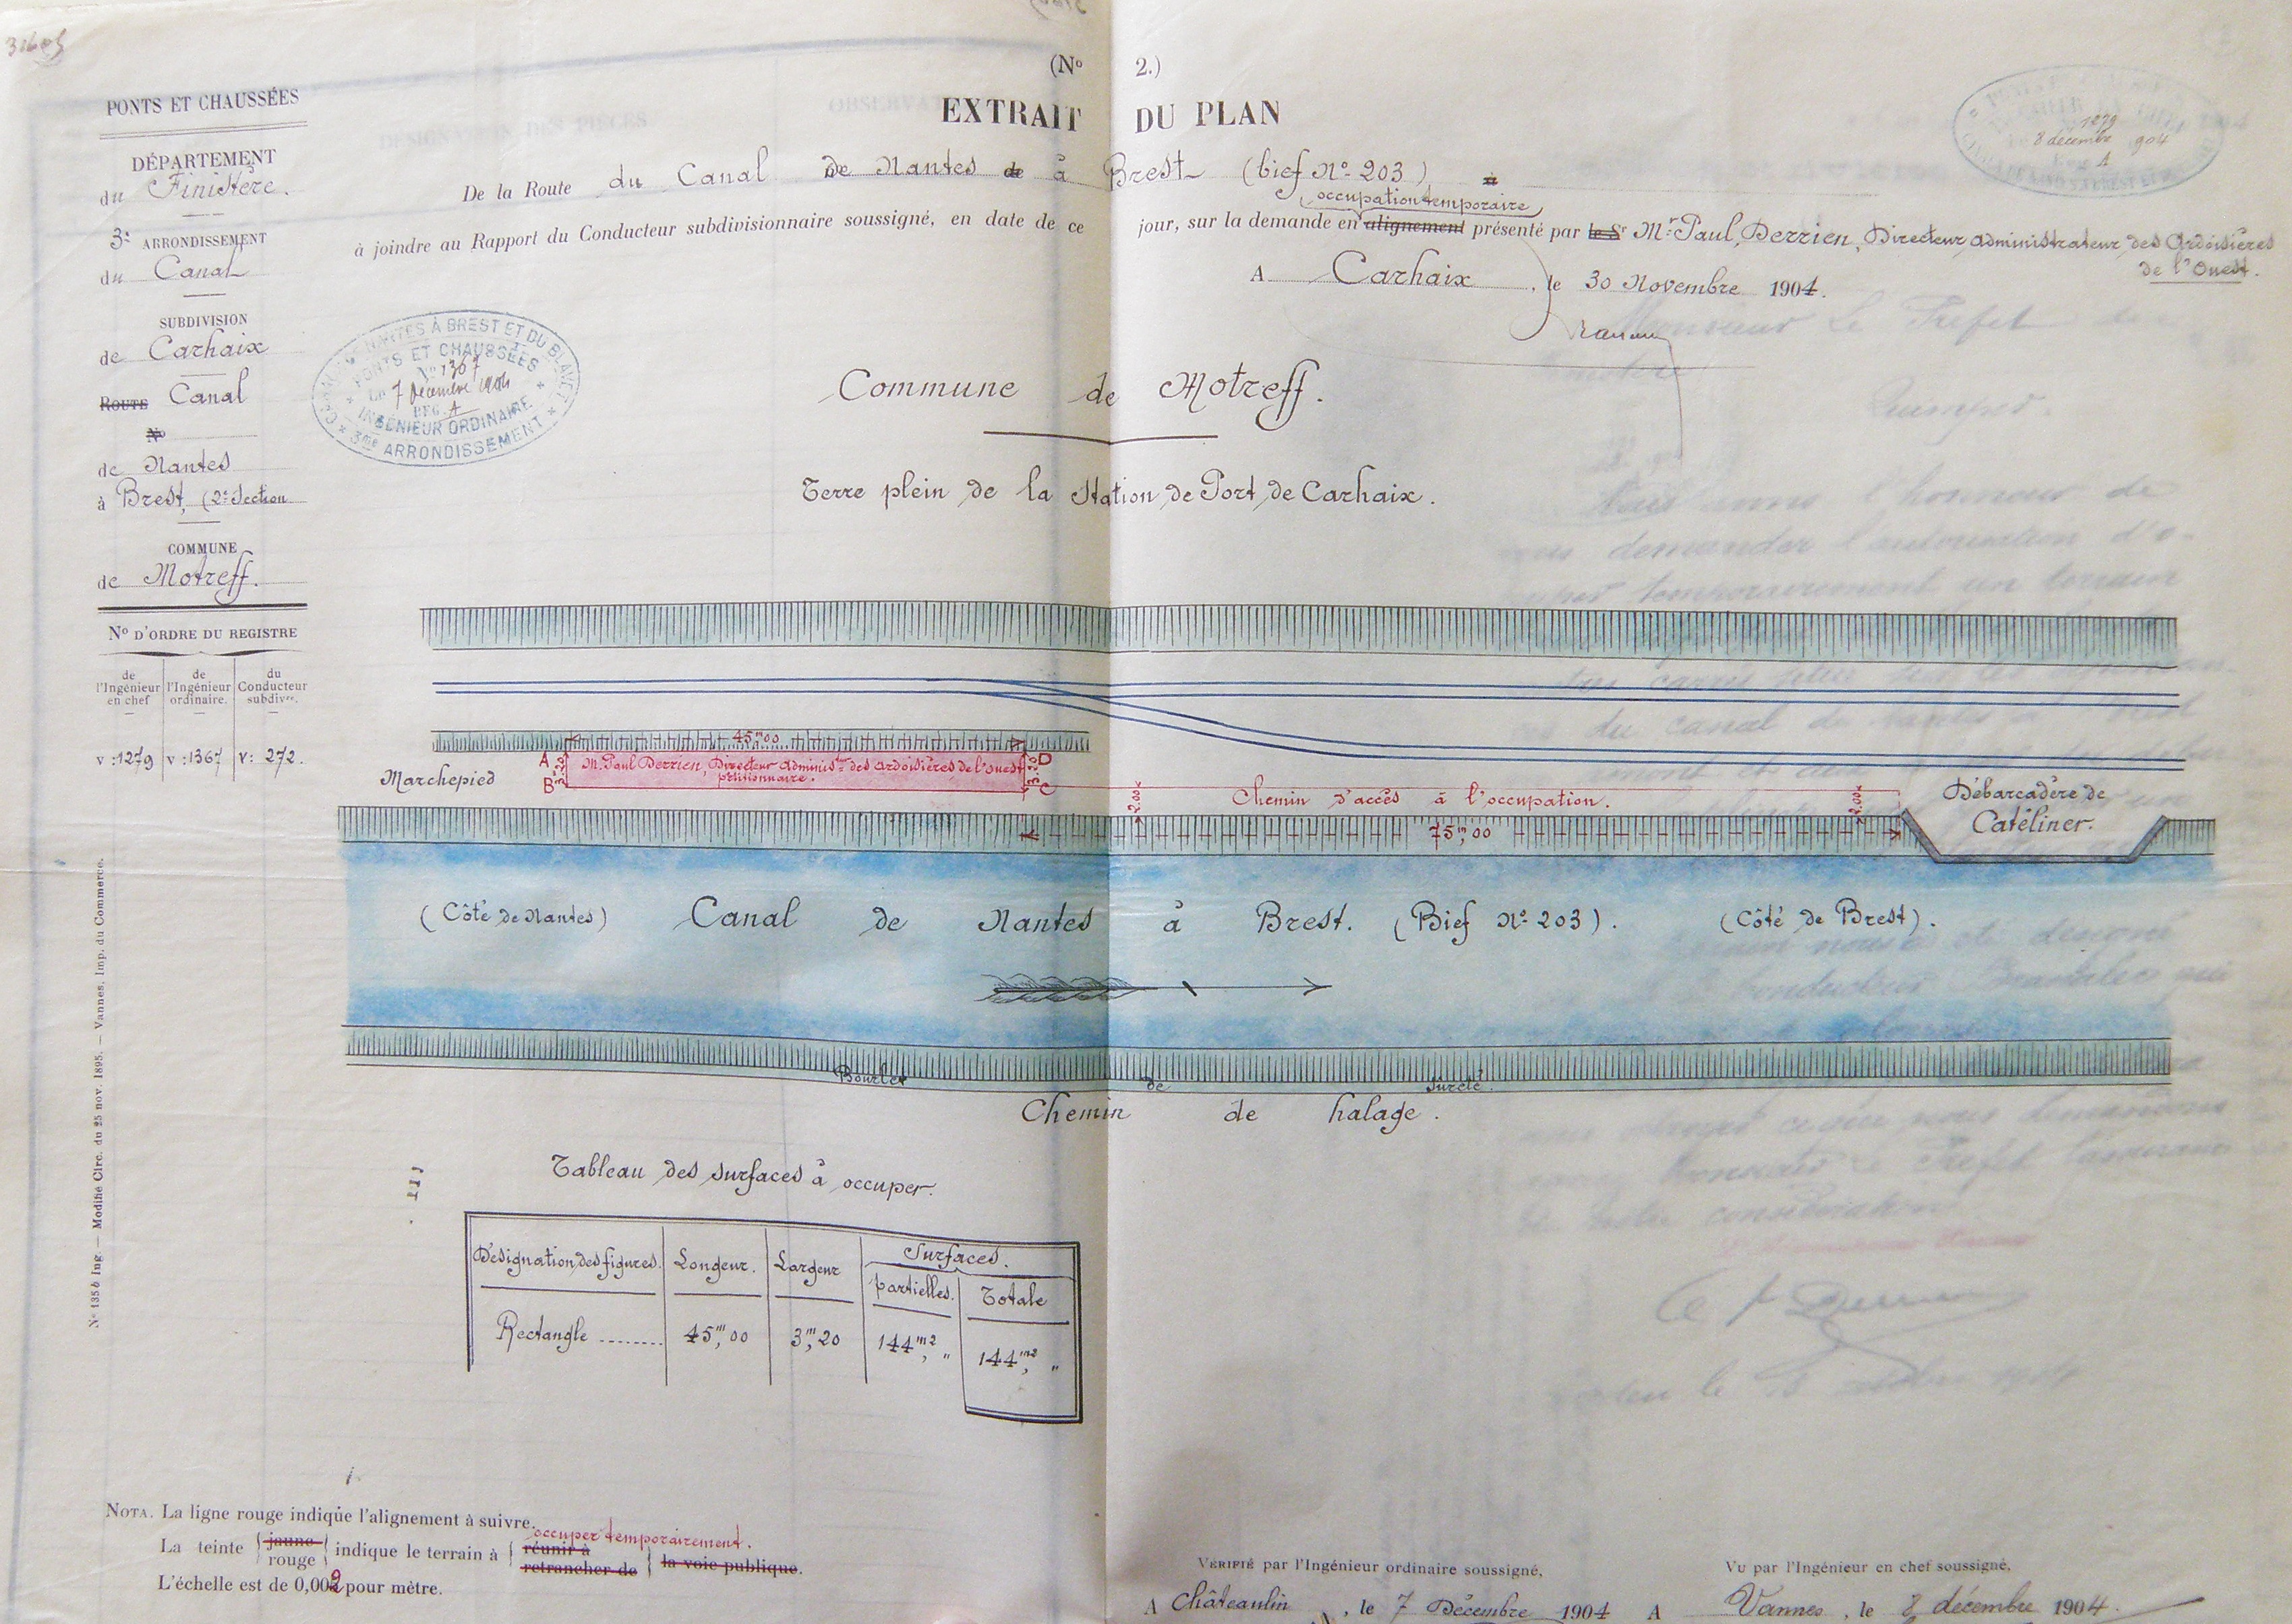 (No 2.)
EXTRAIT DU PLAN
De la Route du Canal de Nantes de à Brest (bief No 203) à
occupation temporaire
à joindre au Rapport du Conducteur subdivisionnaire soussigné, en date de ce jour, sur la demande en alignement présenté par le Sr Mr Paul Derrien, Directeur administrateur des Ardoisières
de l'Ouest.
A Carhaix, le 30 Novembre 1904.
PONTS ET CHAUSSÉES
DÉPARTEMENT
du Finistère.
3e ARRONDISSEMENT
du Canal
SUBDIVISION
de Carhaix
ROUTE Canal
No
de Nantes
à Brest, (2e Section
COMMUNE
de Motreff.
No D'ORDRE DU REGISTRE
de l'Ingénieur en chef
de l'Ingénieur ordinaire.
du Conducteur subdivre.
v : 1279
v : 1367
v : 272.
CANAL DE NANTES À BREST ET DU BLAVET
PONTS ET CHAUSSÉES
No 1367
Le 7 Décembre 1904
REG. A
INGÉNIEUR ORDINAIRE
3me ARRONDISSEMENT
1279
8 décembre 904
A
Commune de Motreff.
Terre plein de la Station de Port de Carhaix.
45m,00
A
D
M. Paul Derrien, Directeur Adminis.teur des ardoisières de l'ouest
pétitionnaire.
3m,20
3m,20
B
C
Marchepied
2,00
Chemin d'accès à l'occupation.
2,00
75m,00
Débarcadère de
Catéliner.
(Côté de Nantes) Canal de Nantes à Brest. (Bief No 203). (Côté de Brest).
Bourlet de sureté.
Chemin de halage.
Tableau des surfaces à occuper.
Désignation des figures. Longeur. Largeur Surfaces.
Partielles. Totale
Rectangle ........ 45m,00 3m,20 144m2, " 144m2, "
NOTA. La ligne rouge indique l'alignement à suivre.
occuper temporairement.
La teinte { jaune rouge } indique le terrain à { réunir à retrancher de } la voie publique.
L'échelle est de 0,002 pour mètre.
VÉRIFIÉ par l'Ingénieur ordinaire soussigné,
A Châteaulin, le 7 Décembre 1904
Vu par l'Ingénieur en chef soussigné,
A Vannes, le 8 décembre 1904.
No 1356 Ing. — Modifié Circ. du 25 nov. 1895. — Vannes, Imp. du Commerce.